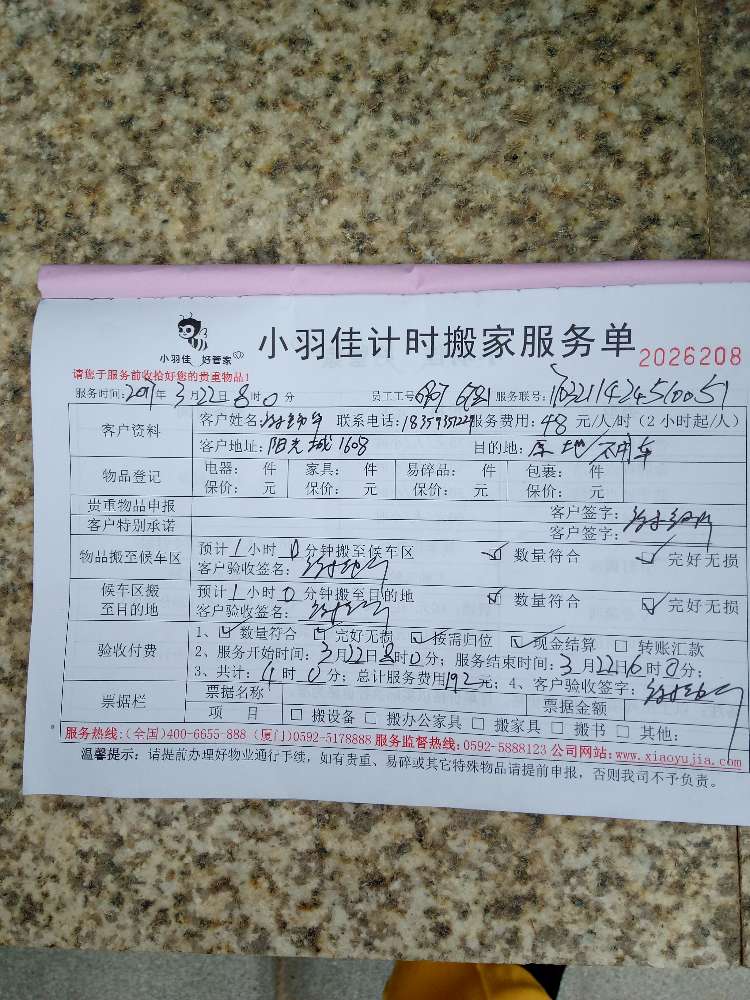 小羽佳 好管家
小羽佳计时搬家服务单
2026208
请您于服务前收拾好您的贵重物品!
服务时间: 年3月22日8时0分 员工工号 服务联号:
客户资料 客户姓名: 联系电话: 服务费用:48元/人/时(2小时起/人)
客户地址:阳光城1608 目的地:原地/不用车
物品登记 电器: 件 家具: 件 易碎品: 件 包裹: 件
保价: 元 保价: 元 保价: 元 保价: 元
贵重物品申报 客户签字:
客户特别承诺 客户签字:
物品搬至候车区 预计1小时0分钟搬至候车区 ☑ 数量符合 ☑ 完好无损
客户验收签名:
候车区搬至目的地 预计1小时0分钟搬至目的地 ☑ 数量符合 ☑ 完好无损
客户验收签名:
验收付费 1、☑ 数量符合 ☑ 完好无损 ☑ 按需归位 ☑ 现金结算 □ 转账汇款
2、服务开始时间:3月22日8时0分; 服务结束时间:3月22日 时0分;
3、共计:4时0分; 总计服务费用192元; 4、客户验收签字:
票据栏 票据名称 票据金额
项 目 □ 搬设备 □ 搬办公家具 □ 搬家具 □ 搬书 □ 其他:
服务热线:(全国)400-6655-888 (厦门)0592-5178888 服务监督热线:0592-5888123 公司网站:www.xiaoyujia.com
温馨提示: 请提前办理好物业通行手续, 如有贵重、易碎或其它特殊物品请提前申报, 否则我司不予负责。